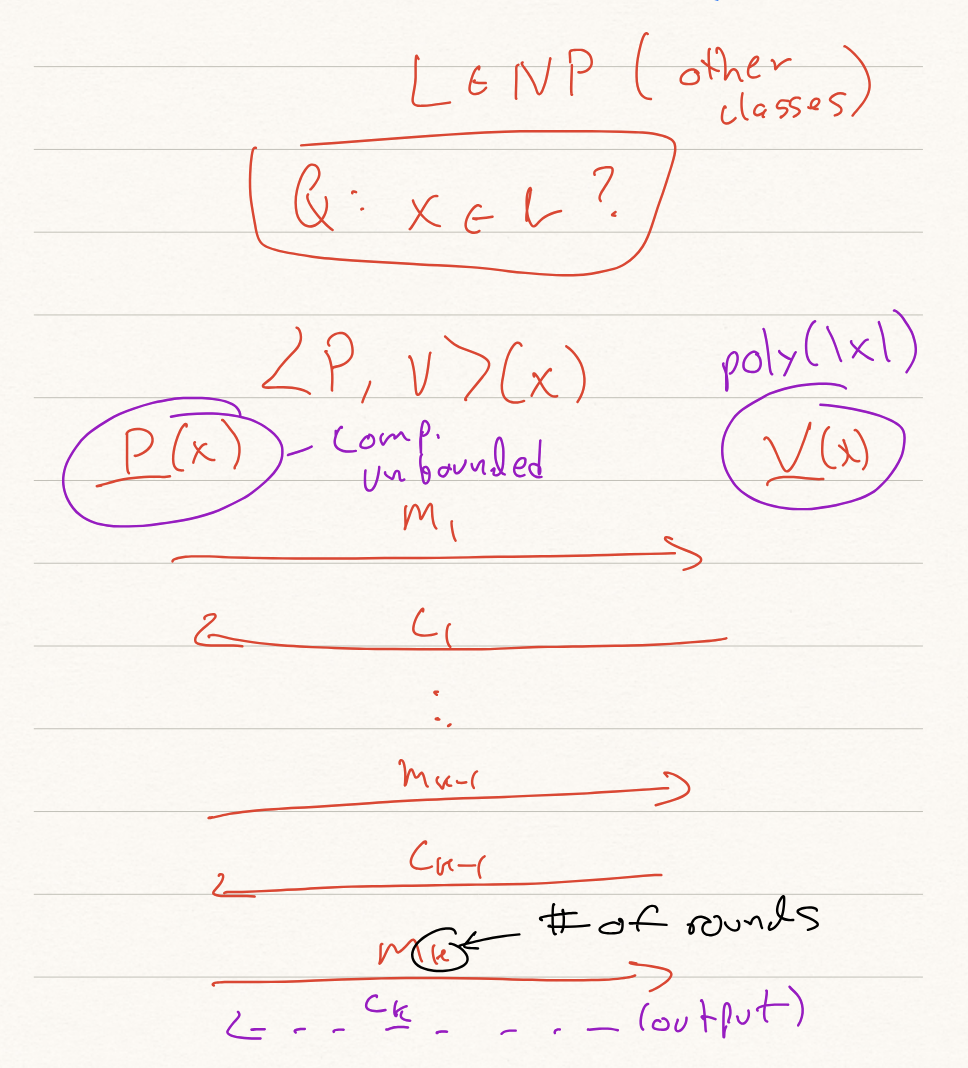 L ∈ NP ( other
classes )
Q: x ∈ L ?
<P, V>(x)
poly(|x|)
P(x) - Comp.
unbounded
V(x)
m₁
c₁
⋮
mₖ₋₁
cₖ₋₁
# of rounds
mₖ
cₖ
(output)